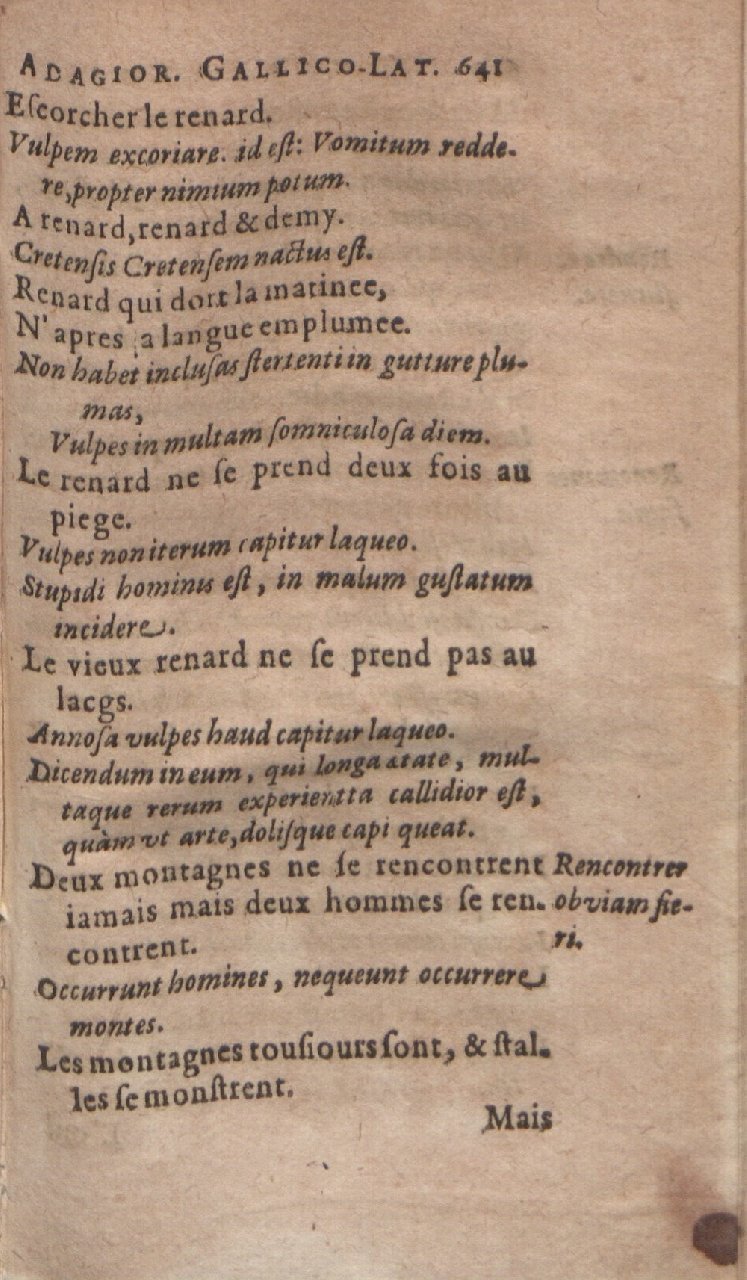 ADAGIOR. GALLICO-LAT. 641
Eſcorcher le renard.
Vulpem excoriare. id eſt: Vomitum redde-
re, propter nimium potum.
A renard, renard & demy.
Cretenſis Cretenſem nactus eſt.
Renard qui dort la matinee,
N'apres la langue emplumee.
Non habet incluſas ſtertenti in gutture plu-
mas,
Vulpes in multam ſomniculoſa diem.
Le renard ne ſe prend deux fois au
piege.
Vulpes non iterum capitur laqueo.
Stupidi hominis eſt, in malum guſtatum
incidere.
Le vieux renard ne ſe prend pas au
lacgs.
Annoſa vulpes haud capitur laqueo.
Dicendum in eum, qui longa ætate, mul-
taque rerum experientia callidior eſt,
quàm vt arte, doliſque capi queat.
Deux montagnes ne ſe rencontrent Rencontrer
iamais mais deux hommes ſe ren- obviam fie-
contrent. ri.
Occurrunt homines, nequeunt occurrere
montes.
Les montagnes touſiours ſont, & ſtal-
les ſe monſtrent.
Mais